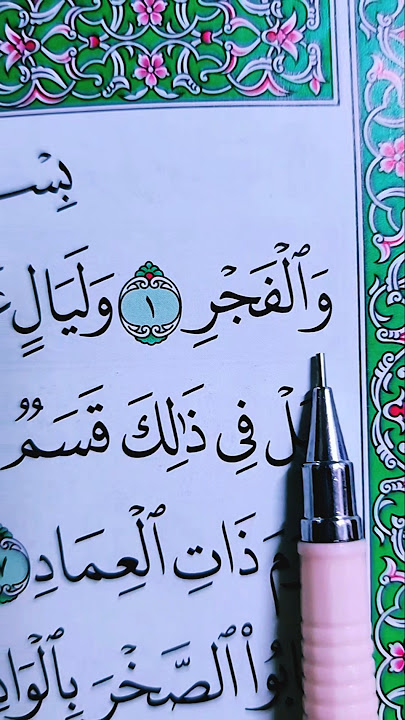 بِسْـ
وَٱلْفَجْرِ ١ وَلَيَالٍ
فِى ذَٰلِكَ قَسَمٌ
ذَاتِ ٱلْعِمَادِ ٧
ٱلصَّخْرَ بِٱلْوَادِ